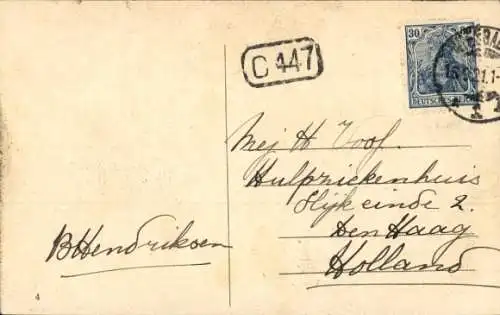 C 447
30
DEUTSCHES
Mej H Voof.
Hulpziekenhuis
Slijkeinde 2.
Den Haag
Holland
BHendriksen
4